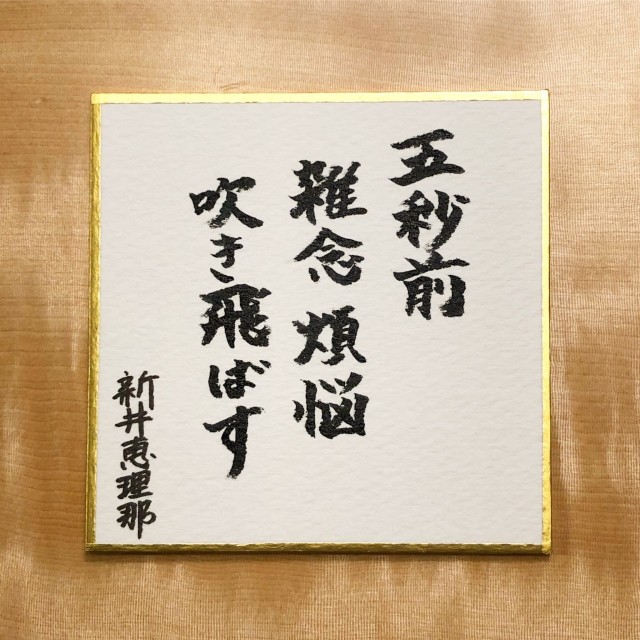 五秒前
雑念 煩悩
吹き飛ばす
新井恵理那